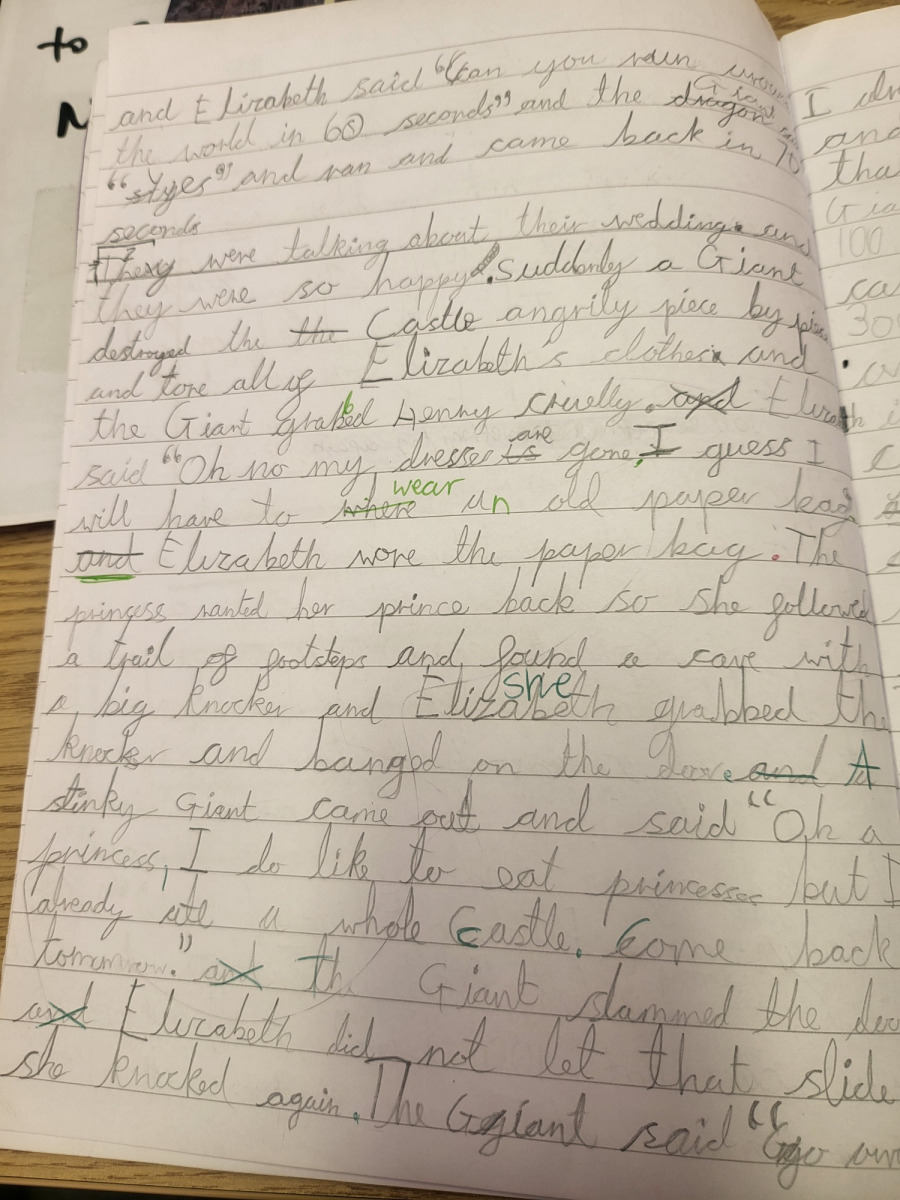 to
N
and Elizabeth said "Can you run
the world in 60 seconds" and the dragon Giant
"yes" and ran and came back in 70
seconds
They were talking about their wedding. and
they were so happy. Suddenly a Giant
destroyed the the Castle angrily piece by piece
and tore all of Elizabeth's clothes. and
the Giant grabbed Henry cruelly. and Elizabeth
said "Oh no my dresses is are gone, I guess I
will have to where wear un old paper bag
and Elizabeth wore the paper bag. The
princess wanted her prince back so she followed
a trail of footsteps and found a cave with
a big knocker and Elizabeth she grabbed the
knocker and banged on the door. and A
stinky Giant came out and said "Oh a
princess, I do like to eat princesses but I
already ate a whole Castle. Come back
tomorrow." and Th Giant slammed the doo
and Elizabeth did not let that slide
she knocked again. The Giant said "Go aw
I
and
tha
Gia
100
ca
300